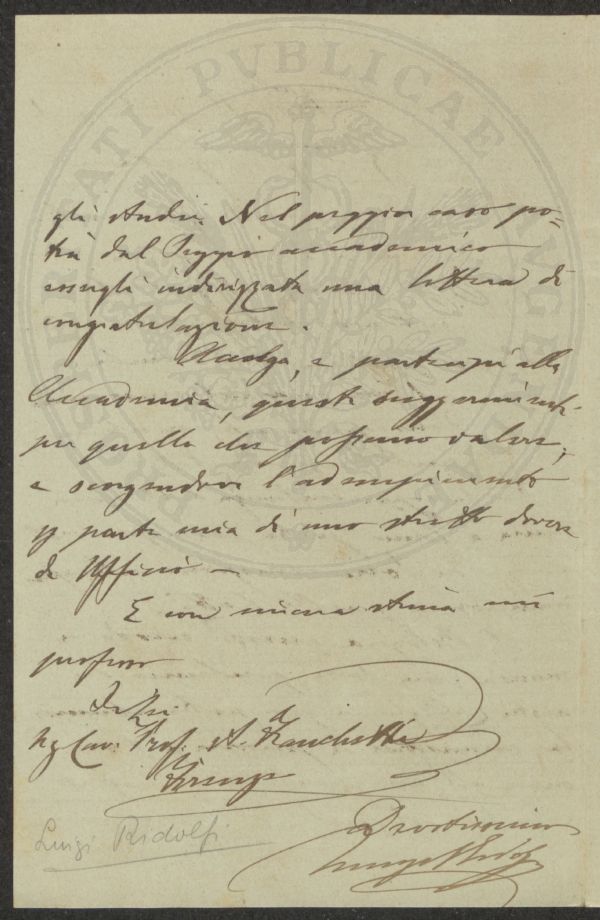 PVBLICAE
gli studi. Nel peggior caso po=
trà dal Seggio accademico
essergli indirizzata una lettera di
congratulazione.
Accolga, e partecipi alla
Accademia, questi suggerimenti
per quello che possano valere,
e scorgendovi l'adempimento
p parte mia di uno stretto dovere
di Ufficio —
E con sincera stima mi
professo
Di Lei
Cav. Prof. A. Zanchetti
Firenze
Devotissimo
Luigi Ridolfi
Luigi Ridolfi